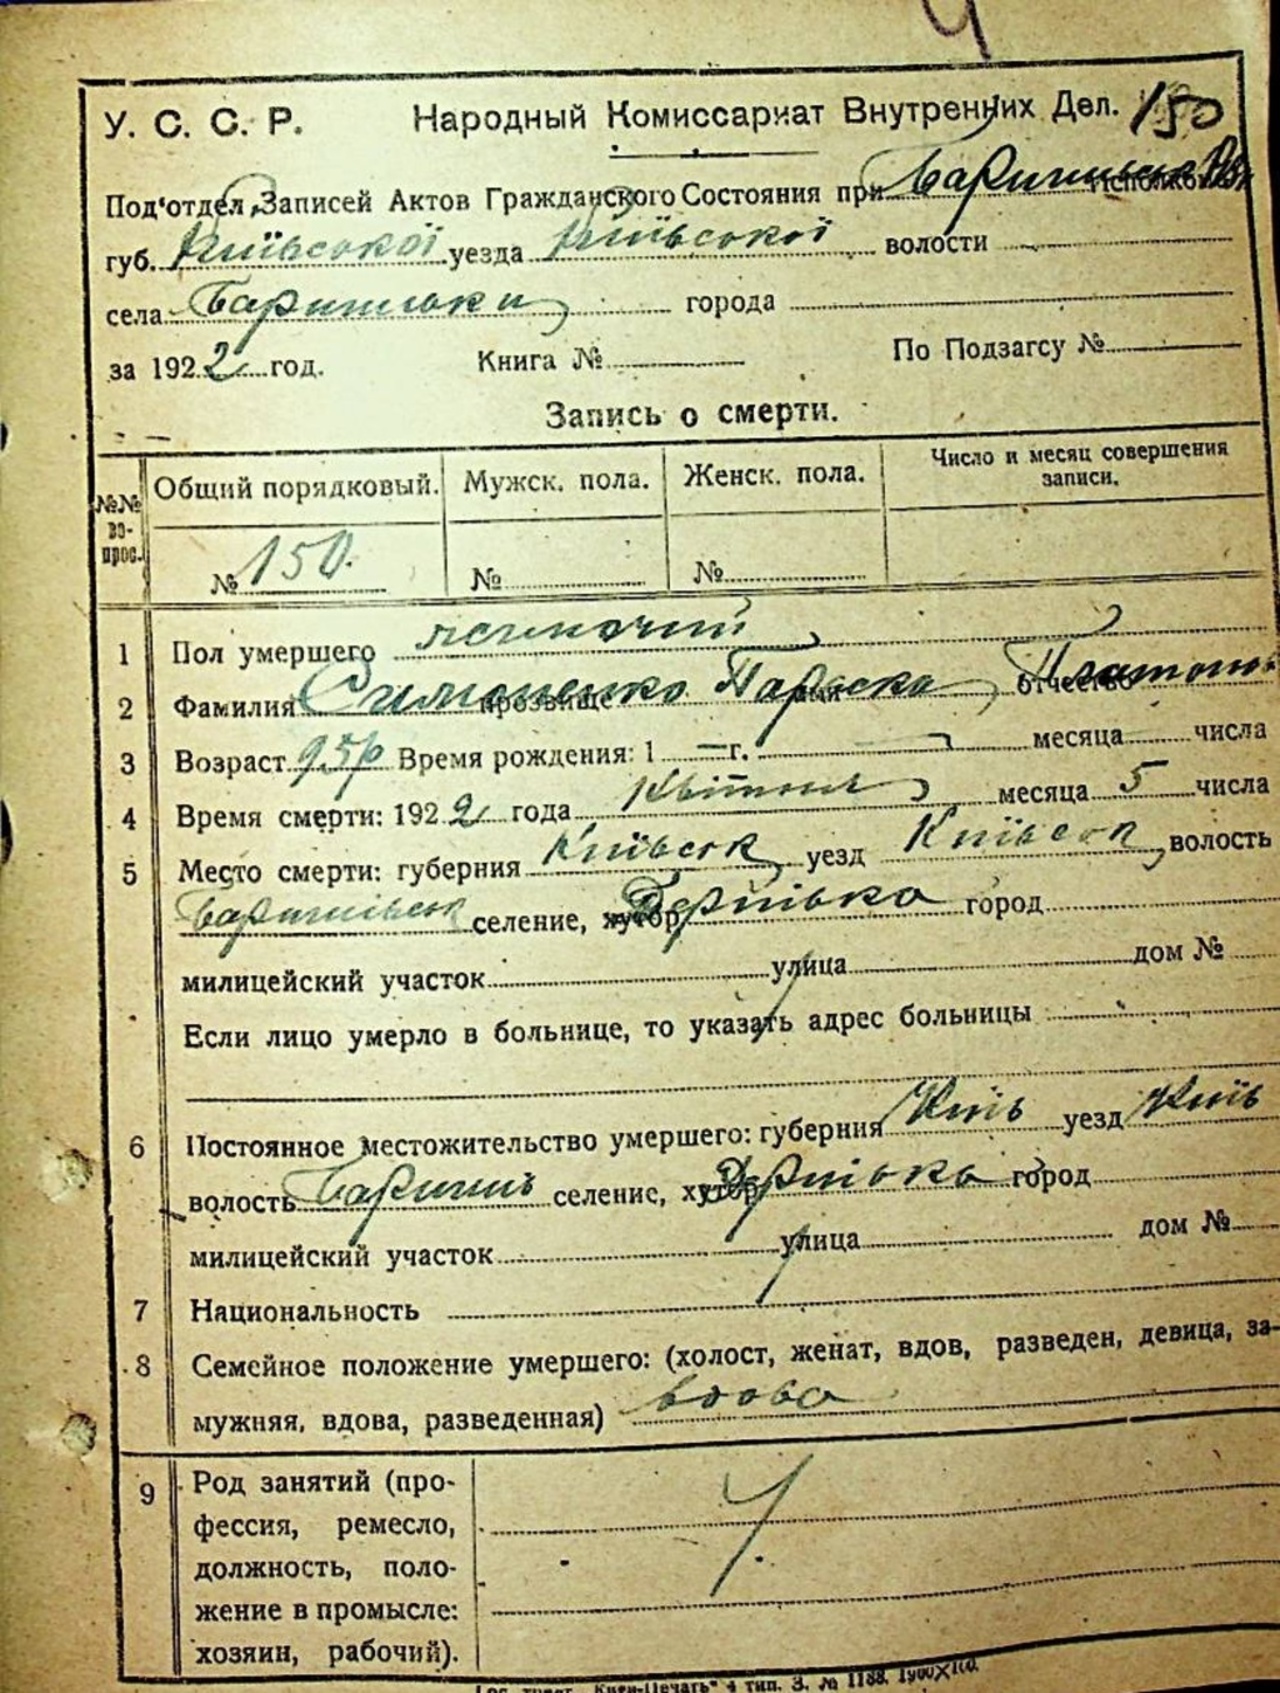 У. С. С. Р. Народный Комиссариат Внутренних Дел. 150
Под'отдел Записей Актов Гражданского Состояния при
губ. Київської уезда Київської волости
села города
за 1922 год. Книга № По Подзагсу №
Запись о смерти.
№№ вопрос. Общий порядковый. Мужск. пола. Женск. пола. Число и месяц совершения
записи.
№ 150. № №
1 Пол умершего жіночий
2 Фамилия Симоненко прозвище Параска отчество Платон.
3 Возраст 95р Время рождения: 1 — г. — месяца числа
4 Время смерти: 1922 года Квітня месяца 5 числа
5 Место смерти: губерния Київськ уезд Київськ волость
селение, хутор город
милицейский участок улица дом №
Если лицо умерло в больнице, то указать адрес больницы
6 Постоянное местожительство умершего: губерния Київ уезд Київ
волость селение, хутор город
милицейский участок улица дом №
7 Национальность
8 Семейное положение умершего: (холост, женат, вдов, разведен, девица, за-
мужняя, вдова, разведенная) вдова
9 Род занятий (про-
фессия, ремесло,
должность, поло-
жение в промысле:
хозяин, рабочий).
тип. З. № 1188.